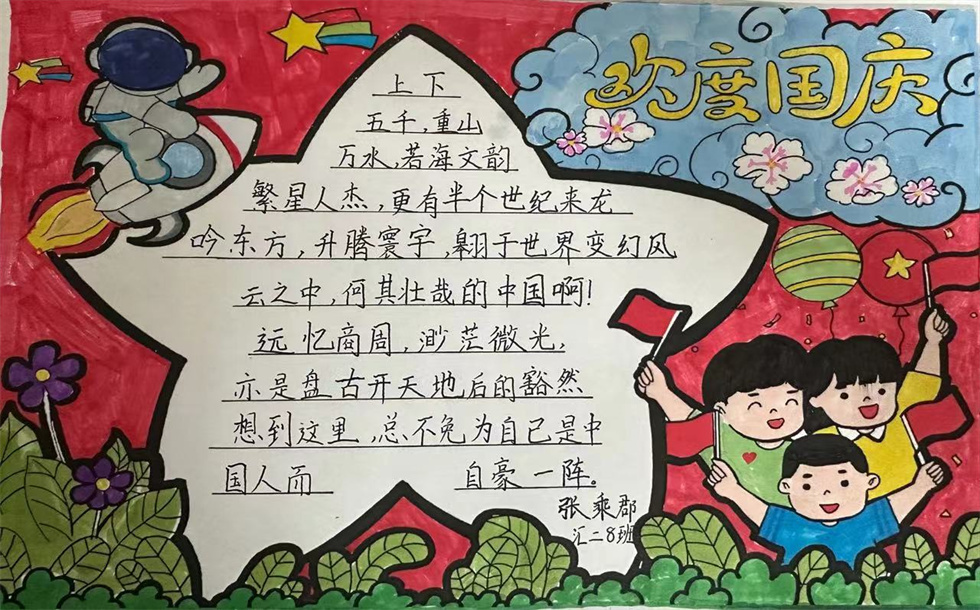 欢度国庆
上下
五千，重山
万水，若海文韵
繁星人杰，更有半个世纪来龙
吟东方，升腾寰宇，翱于世界变幻风
云之中，何其壮哉的中国啊！
远忆商周，渺茫微光，
亦是盘古开天地后的豁然
想到这里，总不免为自己是中
国人而 自豪一阵。
张乘郡
汇二8班